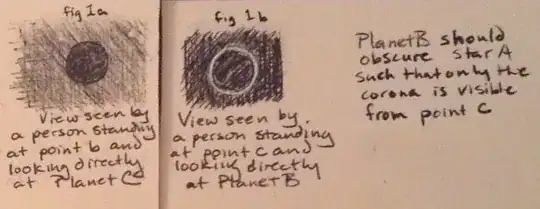 fig 1a
View seen by
a person standing
at point b and
looking directly
at Planet C
fig 1b
View seen by
a person standing
at point C and
looking directly
at Planet B
Planet B should
obscure Star A
such that only the
corona is visible
from point C